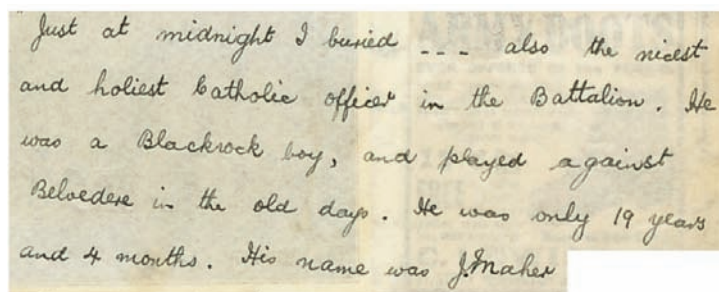 Just at midnight I buried --- also the nicest
and holiest Catholic officer in the Battalion. He
was a Blackrock boy, and played against
Belvedere in the old days. He was only 19 years
and 4 months. His name was J. Maher